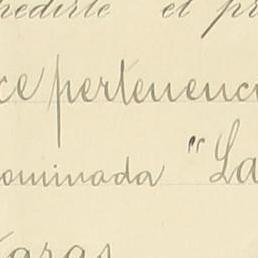 pedirle el pr
ce pertenenc
ominada "La
Varas